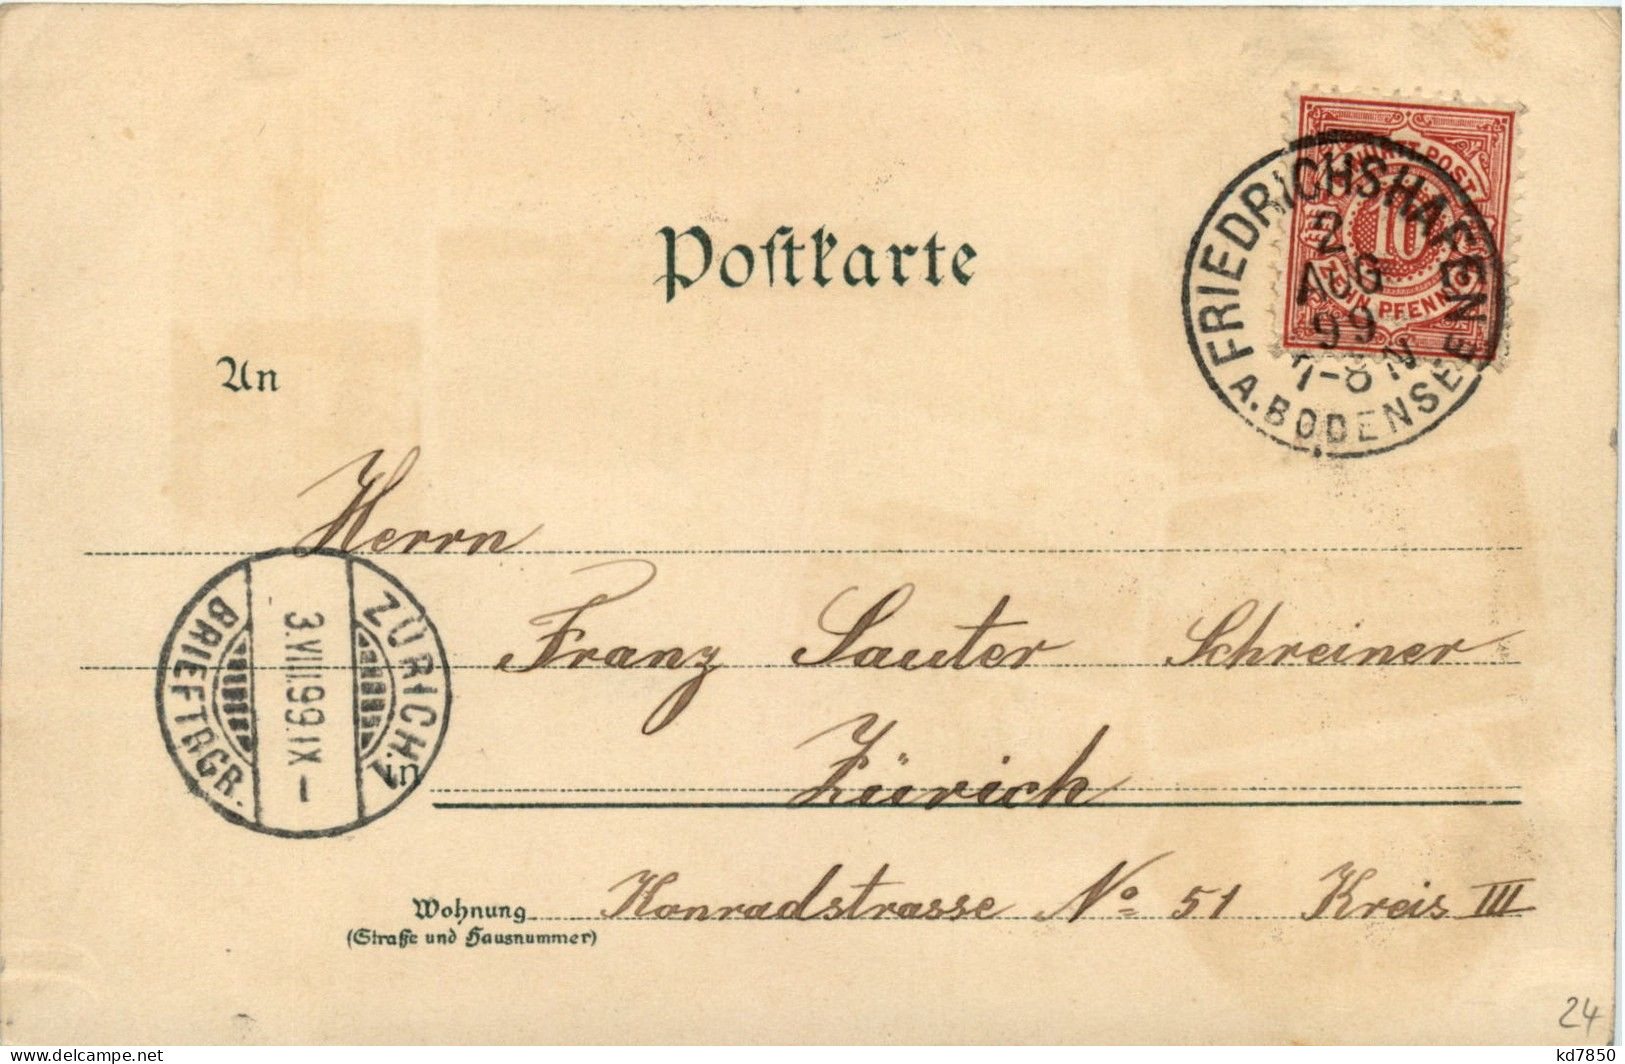 WÜRTT. POST
10
ZEHN PFENNIG
FRIEDRICHSHAFEN
2
AUG
99
7-8 N
A. BODENSEE
Postkarte
An
Herrn
Franz Sauter Schreiner
ZÜRICH.1
3.VIII.99.IX-
BRIEFTRGR.
in Zürich
Wohnung Konradstrasse No 51 Kreis III
(Straße und Hausnummer)
24
delcampe.net
kd7850